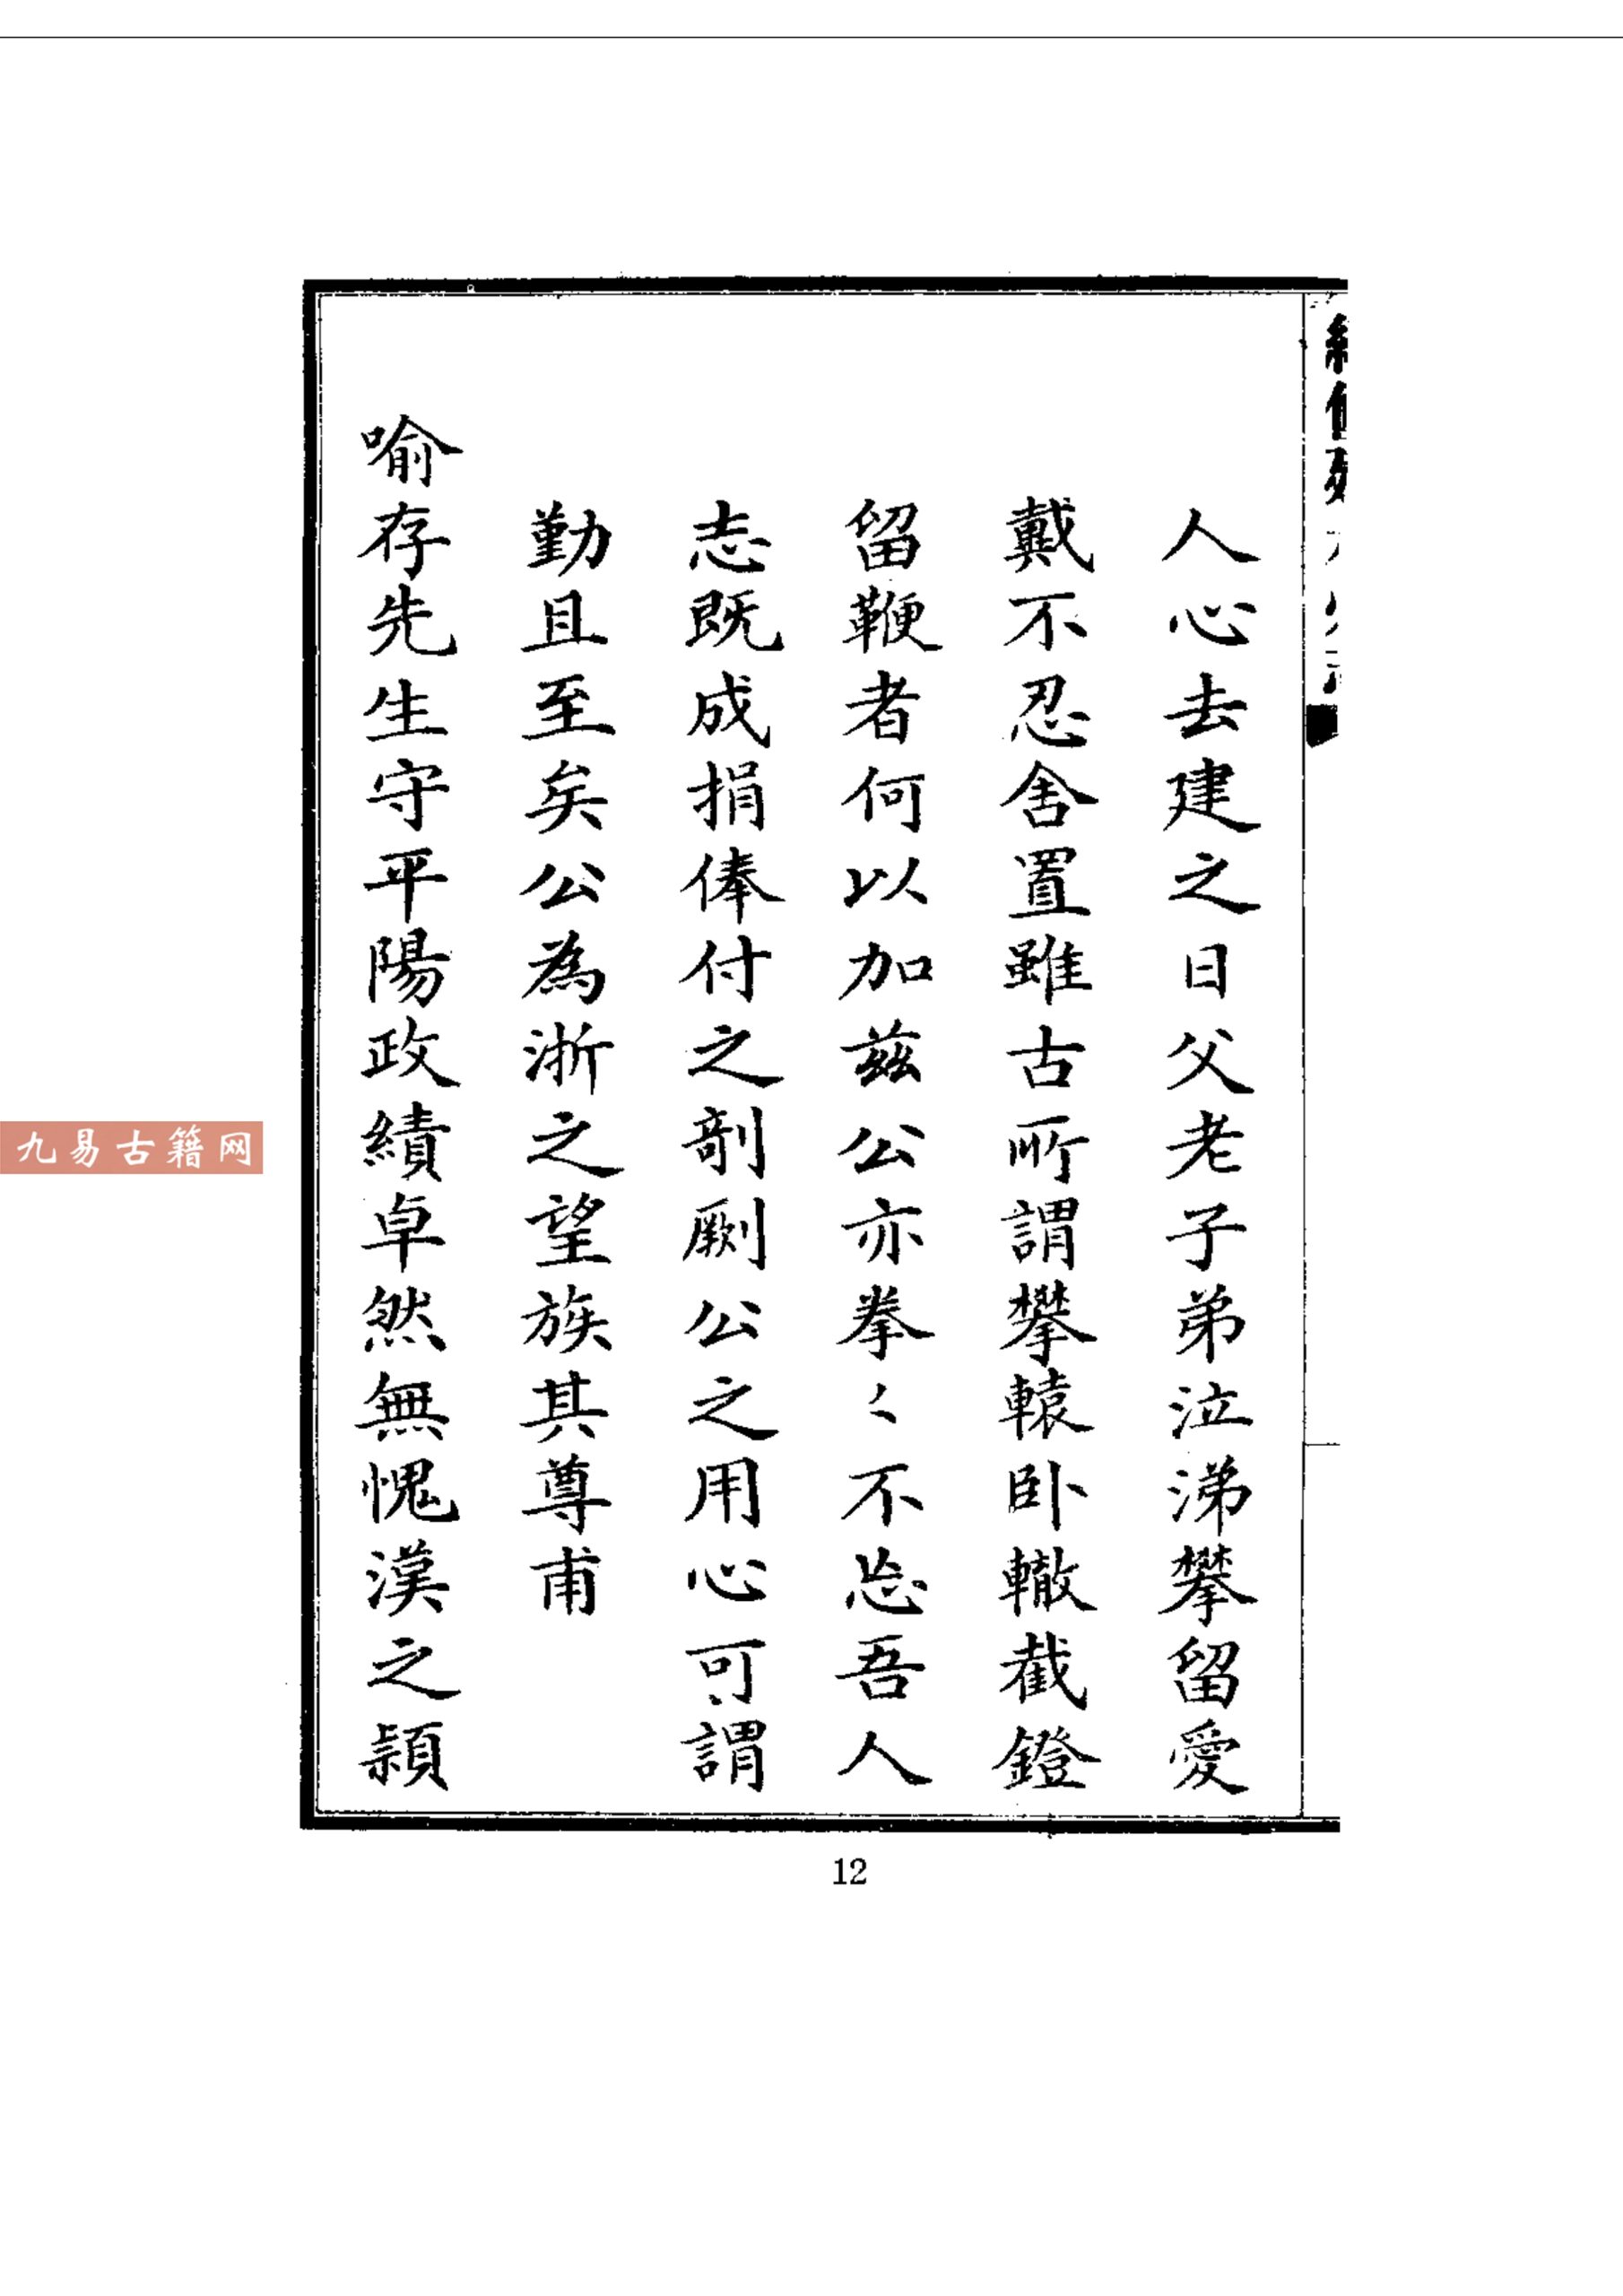 人心去建之日父老子弟泣涕攀留愛
戴不忍舍置雖古所謂攀轅卧轍截鐙
留鞭者何以加兹公亦拳〻不忘吾人
志既成捐俸付之剞劂公之用心可謂
勤且至矣公為浙之望族其尊甫
喻存先生守平陽政績卓然無愧漢之潁
九易古籍网
12